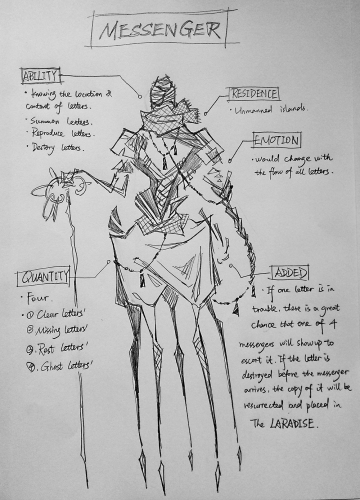 MESSENGER
ABILITY
· Knowing the location &
content of letters.
· Summon Letters.
· Reproduce letters.
· Destory letters.
RESIDENCE
· Unmanned islands.
EMOTION
· would change with
the flow of all letters.
QUANTITY
· Four.
· ① Clear Letters'
② Missing Letters'
③. Rest Letters'
④. Ghost Letters'
ADDED
· If one letter is in
trouble, there is a great
chance that one of 4
messengers will show up to
escort it. If the letter is
destroyed before the messenger
arrives, the copy of it will be
resurrected and placed in
The LARADISE.